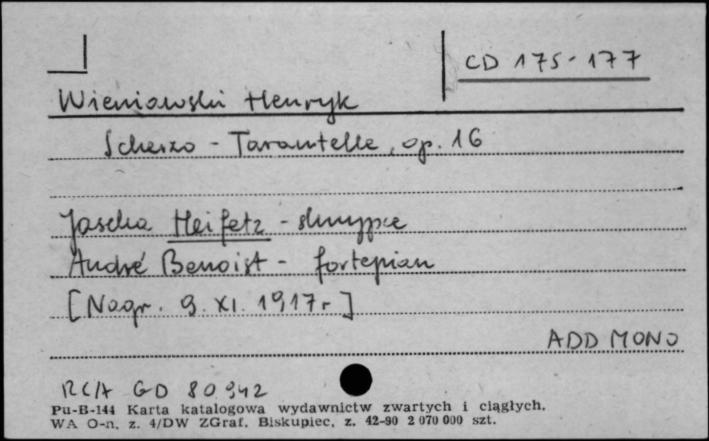 CD 175-177
Wieniawski Henryk
Scherzo - Tarantelle, op. 16
Jascha Heifetz - skrzypce
André Benoist - fortepian
[Nagr. 9. XI. 1917r]
ADD MONO
RCA GD 80942
Pu-B-144 Karta katalogowa wydawnictw zwartych i ciągłych.
WA O-n. z. 4/DW ZGraf. Biskupiec, z. 42-90 2 070 000 szt.